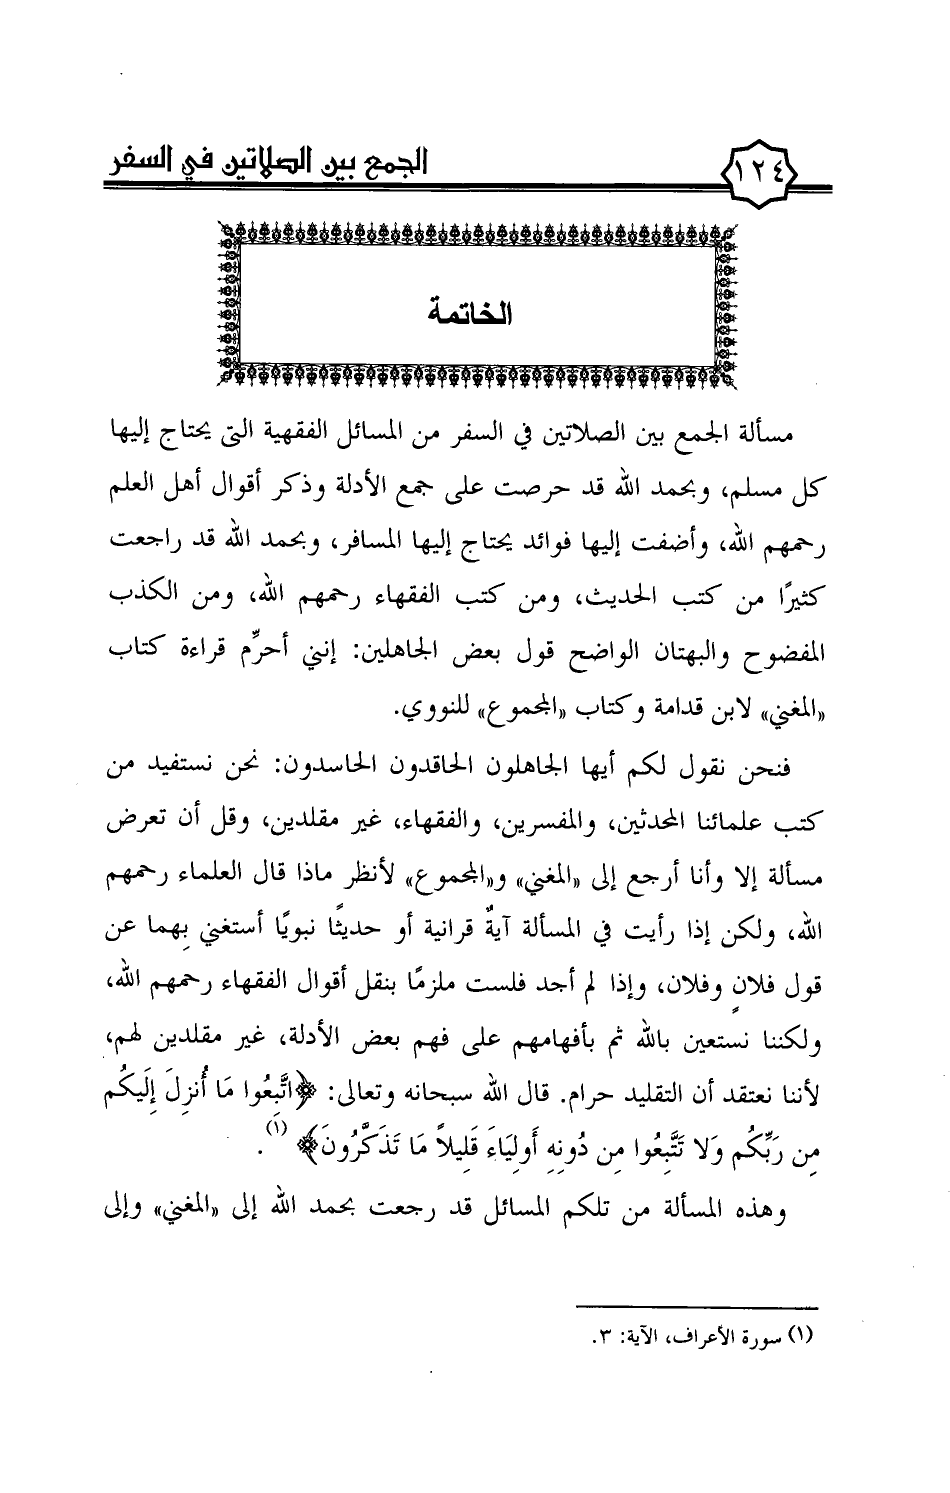 الجمع بين الصلاتين في السفر
١٢٤
الخاتمة
مسألة الجمع بين الصلاتين في السفر من المسائل الفقهية التي يحتاج إليها
كل مسلم، وبحمد الله قد حرصت على جمع الأدلة وذكر أقوال أهل العلم
رحمهم الله، وأضفت إليها فوائد يحتاج إليها المسافر، وبحمد الله قد راجعت
كثيرًا من كتب الحديث، ومن كتب الفقهاء رحمهم الله، ومن الكذب
المفضوح والبهتان الواضح قول بعض الجاهلين: إنني أحرِّم قراءة كتاب
«المغني» لابن قدامة وكتاب «المجموع» للنووي.
فنحن نقول لكم أيها الجاهلون الحاقدون الحاسدون: نحن نستفيد من
كتب علمائنا المحدثين، والمفسرين، والفقهاء، غير مقلدين، وقل أن تعرض
مسألة إلا وأنا أرجع إلى «المغني» و«المجموع» لأنظر ماذا قال العلماء رحمهم
الله، ولكن إذا رأيت في المسألة آيةً قرانية أو حديثًا نبويًا أستغني بِهما عن
قول فلانٍ وفلان، وإذا لم أجد فلست ملزمًا بنقل أقوال الفقهاء رحمهم الله،
ولكننا نستعين بالله ثم بأفهامهم على فهم بعض الأدلة، غير مقلدين لهم،
لأننا نعتقد أن التقليد حرام. قال الله سبحانه وتعالى: ﴿اتَّبِعُوا مَا أُنزِلَ إِلَيكُم
مِن رَبِّكُم وَلا تَتَّبِعُوا مِن دُونِهِ أَولِيَاءَ قَلِيلاً مَا تَذَكَّرُونَ﴾ (١).
وهذه المسألة من تلكم المسائل قد رجعت بحمد الله إلى «المغني» وإلى
(١) سورة الأعراف، الآية: ٣.